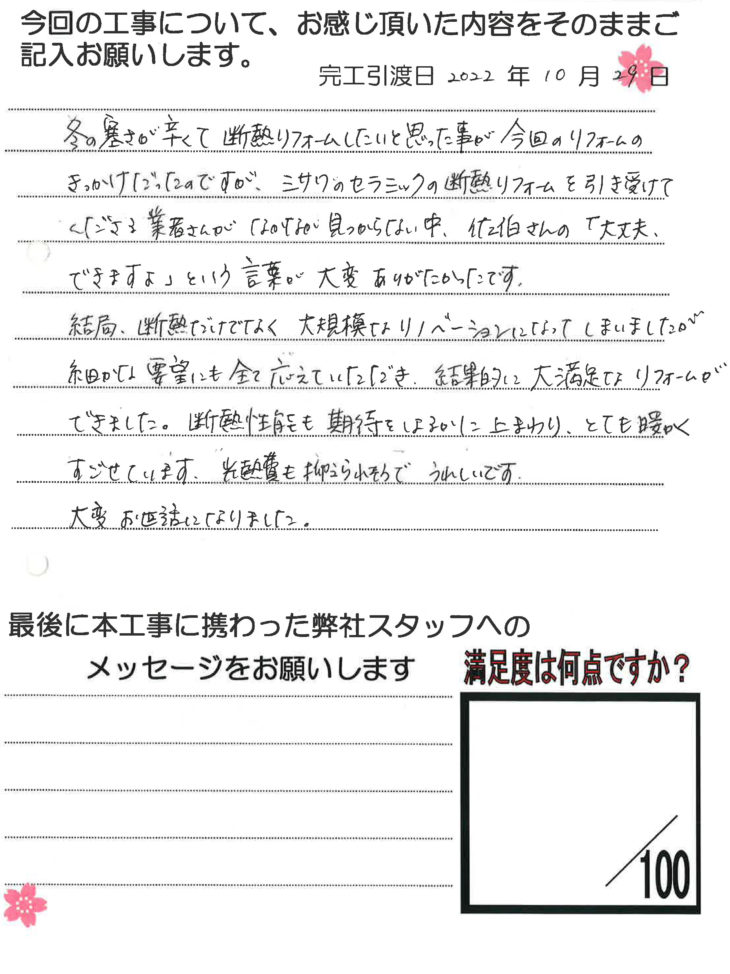 今回の工事について、お感じ頂いた内容をそのままご
記入お願いします。
完工引渡日 2022 年 10 月 29 日
冬の寒さが辛くて断熱リフォームしたいと思った事が今回のリフォームの
きっかけだったのですが、ミサワのセラミックの断熱リフォームを引き受けて
くださる業者さんがなかなか見つからない中、佐伯さんの「大丈夫、
できますよ」という言葉が大変ありがたかったです。
結局、断熱だけでなく大規模なリノベーションになってしまいましたが
細かな要望にも全て応えていただき、結果的に大満足なリフォームが
できました。断熱性能も期待をはるかに上まわり、とても暖かく
すごせています。光熱費も抑えられそうでうれしいです。
大変お世話になりました。
最後に本工事に携わった弊社スタッフへの
メッセージをお願いします
満足度は何点ですか？
/100